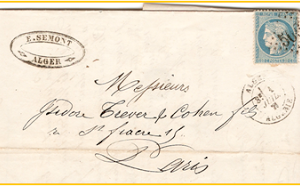 E. SEMONT
ALGER
Messieurs
Isidore Trever & Cohen
St fiacre 15
Paris
ALGERIE